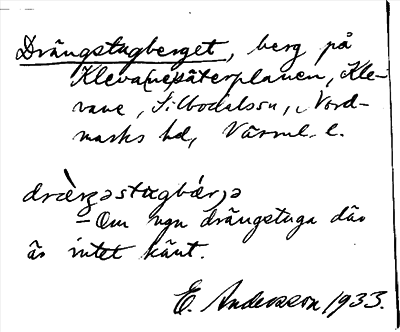 Drängstugberget, berg på
Kleva(ne)säterplanen, Kle-
vane, S:lbodalssn, Nord-
marks hd, Värml. l.
dræ̀ŋəstugbǽrjə
– Om ngn drängstuga där
är intet känt.
E. Andersson 1933.